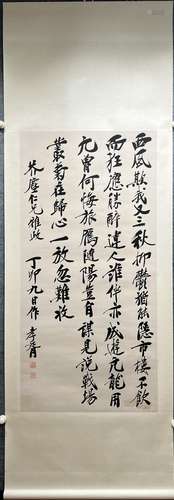 西風欺我又三秋抑鬱猶能隱市樓不飲
而狂應勝醉達人誰伴亦成遊无能用
九曾何悔旅雁隨陽豈自謀見說戰場
叢菊在歸心一放忽難收
芥塵仁兄雅政
丁卯九日作 孝胥